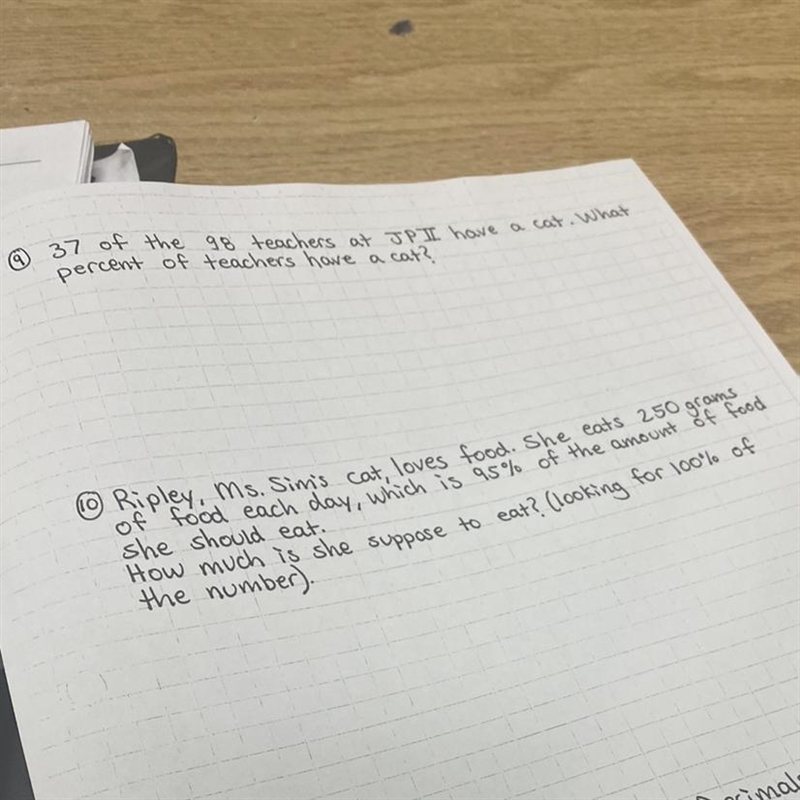 9 37 of the 98 teachers at JPII have a cat. What
percent of teachers have a cat?
10 Ripley, Ms. Sim's cat, loves food. She eats 250 grams
of food each day, which is 95% of the amount of food
she should eat.
How much is she suppose to eat? (looking for 100% of
the number).